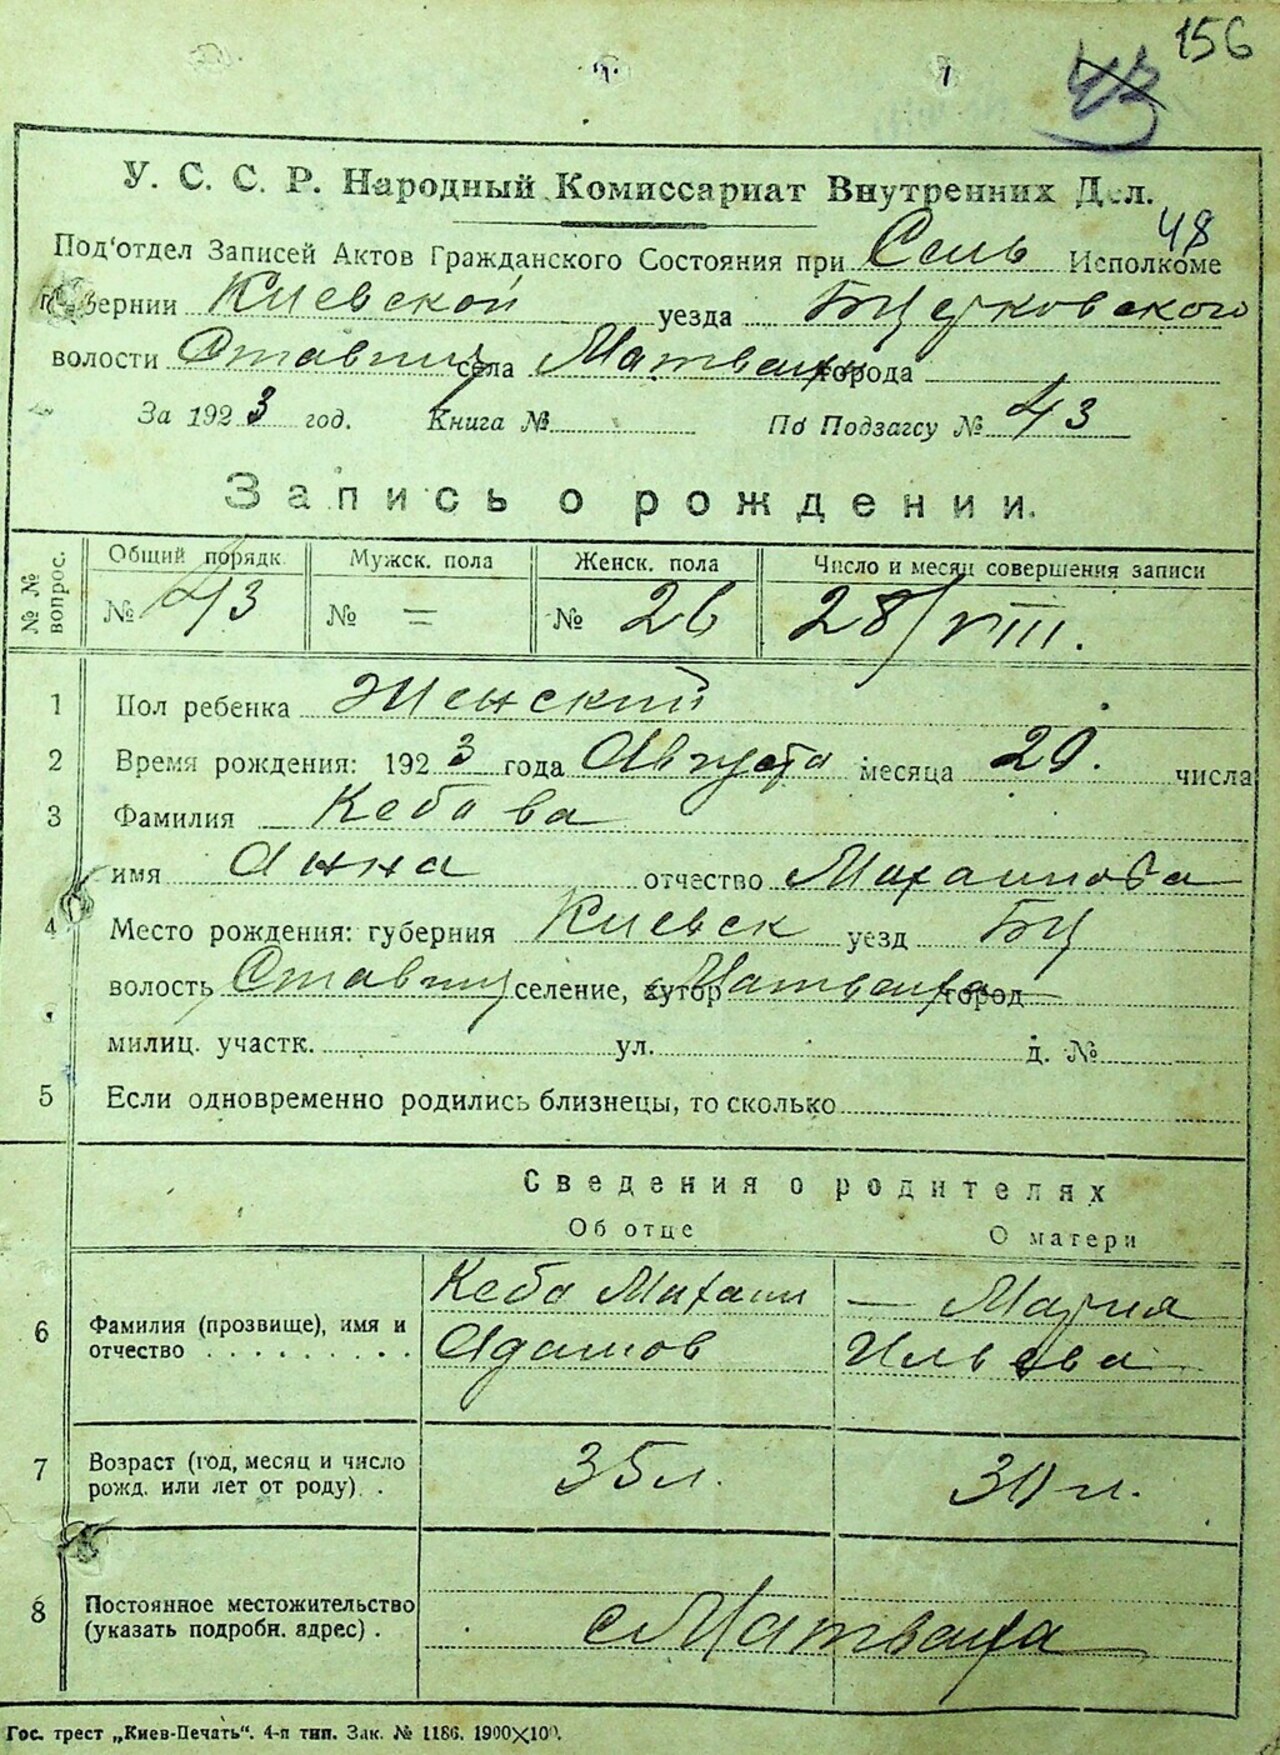 156
43
У. С. С. Р. Народный Комиссариат Внутренних Дел.
48
Под'отдел Записей Актов Гражданского Состояния при Сель Исполкоме
губернии Киевской уезда БЦерковского
волости Ставищ села Матвеиха города
За 1923 год. Книга № По Подзагсу № 43
Запись о рождении.
№ № вопрос. Общий порядк. Мужск. пола Женск. пола Число и месяц совершения записи
№ 43 № = № 26 28/VIII.
1 Пол ребенка Женский
2 Время рождения: 1923 года Августа месяца 20. числа
3 Фамилия Кебова
имя Анна отчество Михаилова
4 Место рождения: губерния Киевск уезд БЦ
волость Ставищ селение, хутор Матвеиха город
милиц. участк. ул. д. №
5 Если одновременно родились близнецы, то сколько
Сведения о родителях
Об отце О матери
Кеба Михаил — Мария
6 Фамилия (прозвище), имя и
отчество . . . . . . . . . Адамов Ильева
7 Возраст (год, месяц и число
рожд. или лет от роду) . . 35 л. 30 л.
8 Постоянное местожительство
(указать подробн. адрес) . с Матвеиха
Гос. трест „Киев-Печать“. 4-п тип. Зак. № 1186. 1900×100.